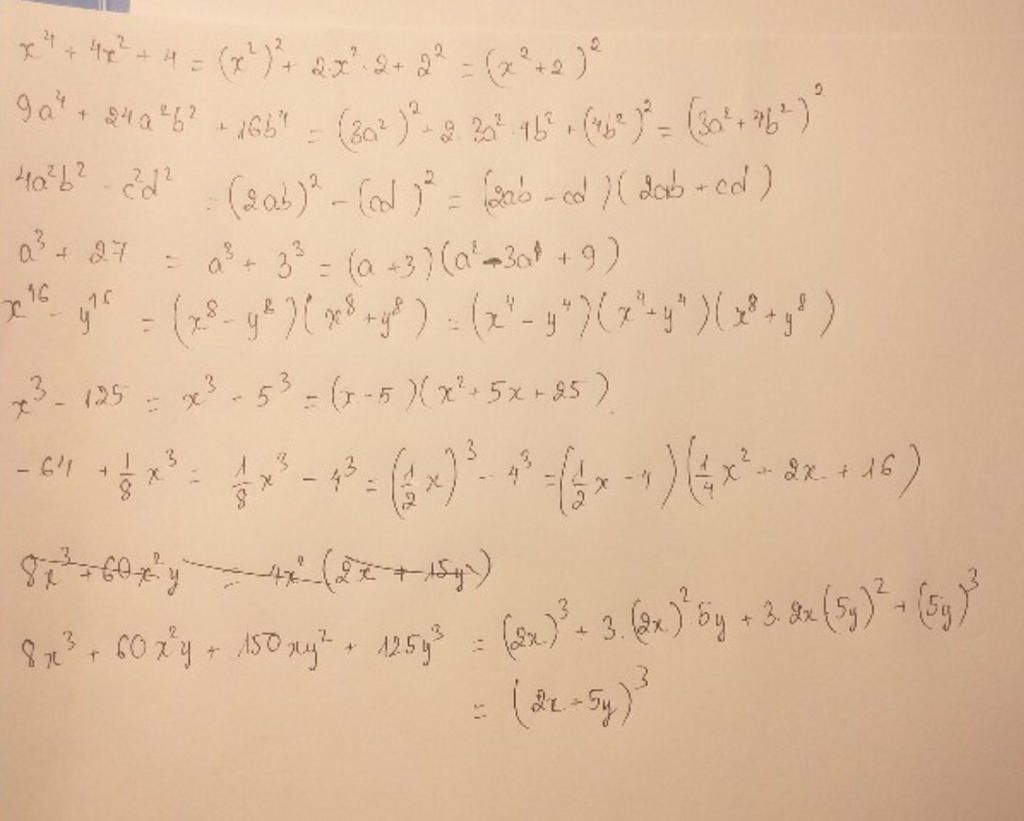 x⁴ + 4x² + 4 = (x²)² + 2·x²·2 + 2² = (x² + 2)²
9a⁴ + 24a²b² + 16b⁴ = (3a²)² + 2·3a²·4b² + (4b²)² = (3a² + 4b²)²
4a²b² - c²d² = (2ab)² - (cd)² = (2ab - cd)(2ab + cd)
a³ + 27 = a³ + 3³ = (a + 3)(a² - 3a + 9)
x¹⁶ - y¹⁶ = (x⁸ - y⁸)(x⁸ + y⁸) = (x⁴ - y⁴)(x⁴ + y⁴)(x⁸ + y⁸)
x³ - 125 = x³ - 5³ = (x - 5)(x² + 5x + 25)
- 64 + 1/8 x³ = 1/8 x³ - 4³ = (1/2 x)³ - 4³ = (1/2 x - 4)(1/4 x² + 2x + 16)
8x³ + 60x²y = 4x²(2x + 15y)
8x³ + 60x²y + 150xy² + 125y³ = (2x)³ + 3·(2x)²·5y + 3·2x(5y)² + (5y)³
= (2x + 5y)³